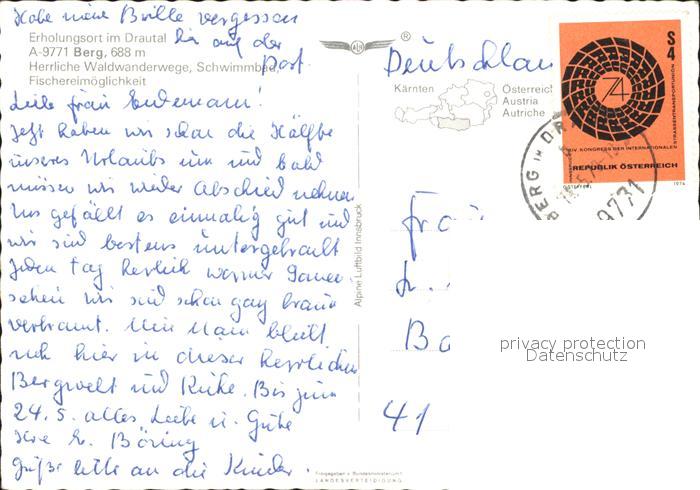 Habe meine Brille vergessen
bin auf der
Post.
Erholungsort im Drautal
A-9771 Berg, 688 m
Herrliche Waldwanderwege, Schwimmbad,
Fischereimöglichkeit
Liebe Frau Endemann!
Jetzt haben wir schon die Hälfte
unseres Urlaubs um und bald
müssen wir wieder Abschied nehmen
Uns gefällt es einmalig gut und
wir sind bestens untergebracht
Jeden Tag herrlich warmer Sonnen-
schein wir sind schon ganz braun
verbrannt. Mein Mann bleibt
noch hier in dieser herrlichen
Bergwelt und Ruhe. Bis zum
24.5. alles Liebe u. Gute
Ihre E. Böring
Grüße bitte an die Kinder.
Alpine Luftbild Innsbruck
®
Deutschlan
Kärnten
Österreich
Austria
Autriche
S 4
74
XIV. KONGRESS DER INTERNATIONALEN
STRASSENTRANSPORTUNION
REPUBLIK ÖSTERREICH
1974
BERG IM DR
9771
Fra
Bo
41
privacy protection
Datenschutz
Freigegeben v. Bundesministerium f.
LANDESVERTEIDIGUNG